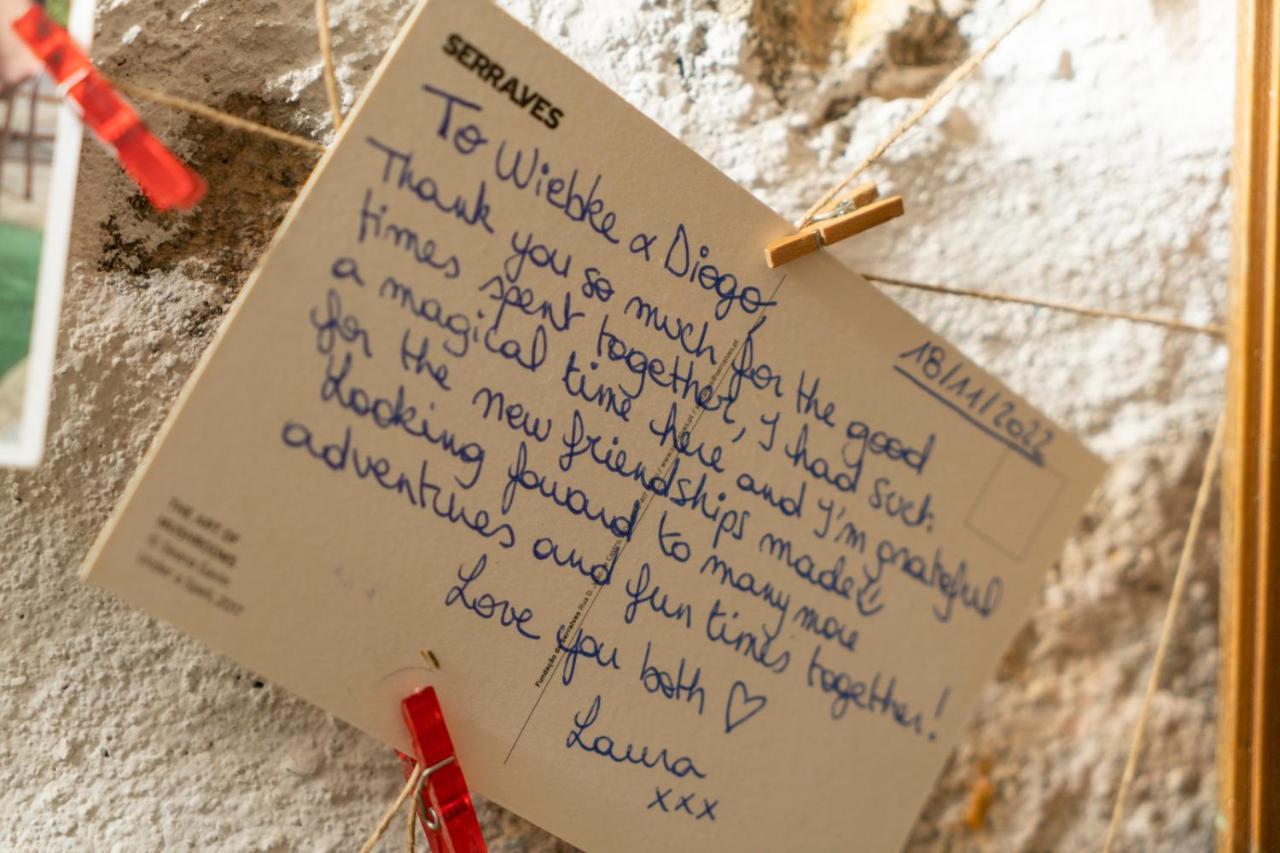 SERRAVES
To Wiebke & Diogo,
Thank you so much for the good
times spent together, I had such
a magical time here and I'm grateful
for the new friendships made
Looking foward to many more
adventures and fun times together!
Love you both ♡
Laura
xxx
18/11/2022
THE ART OF
MUSHROOMS
Under a Spell, 2017
Fundação de Serralves Rua D.